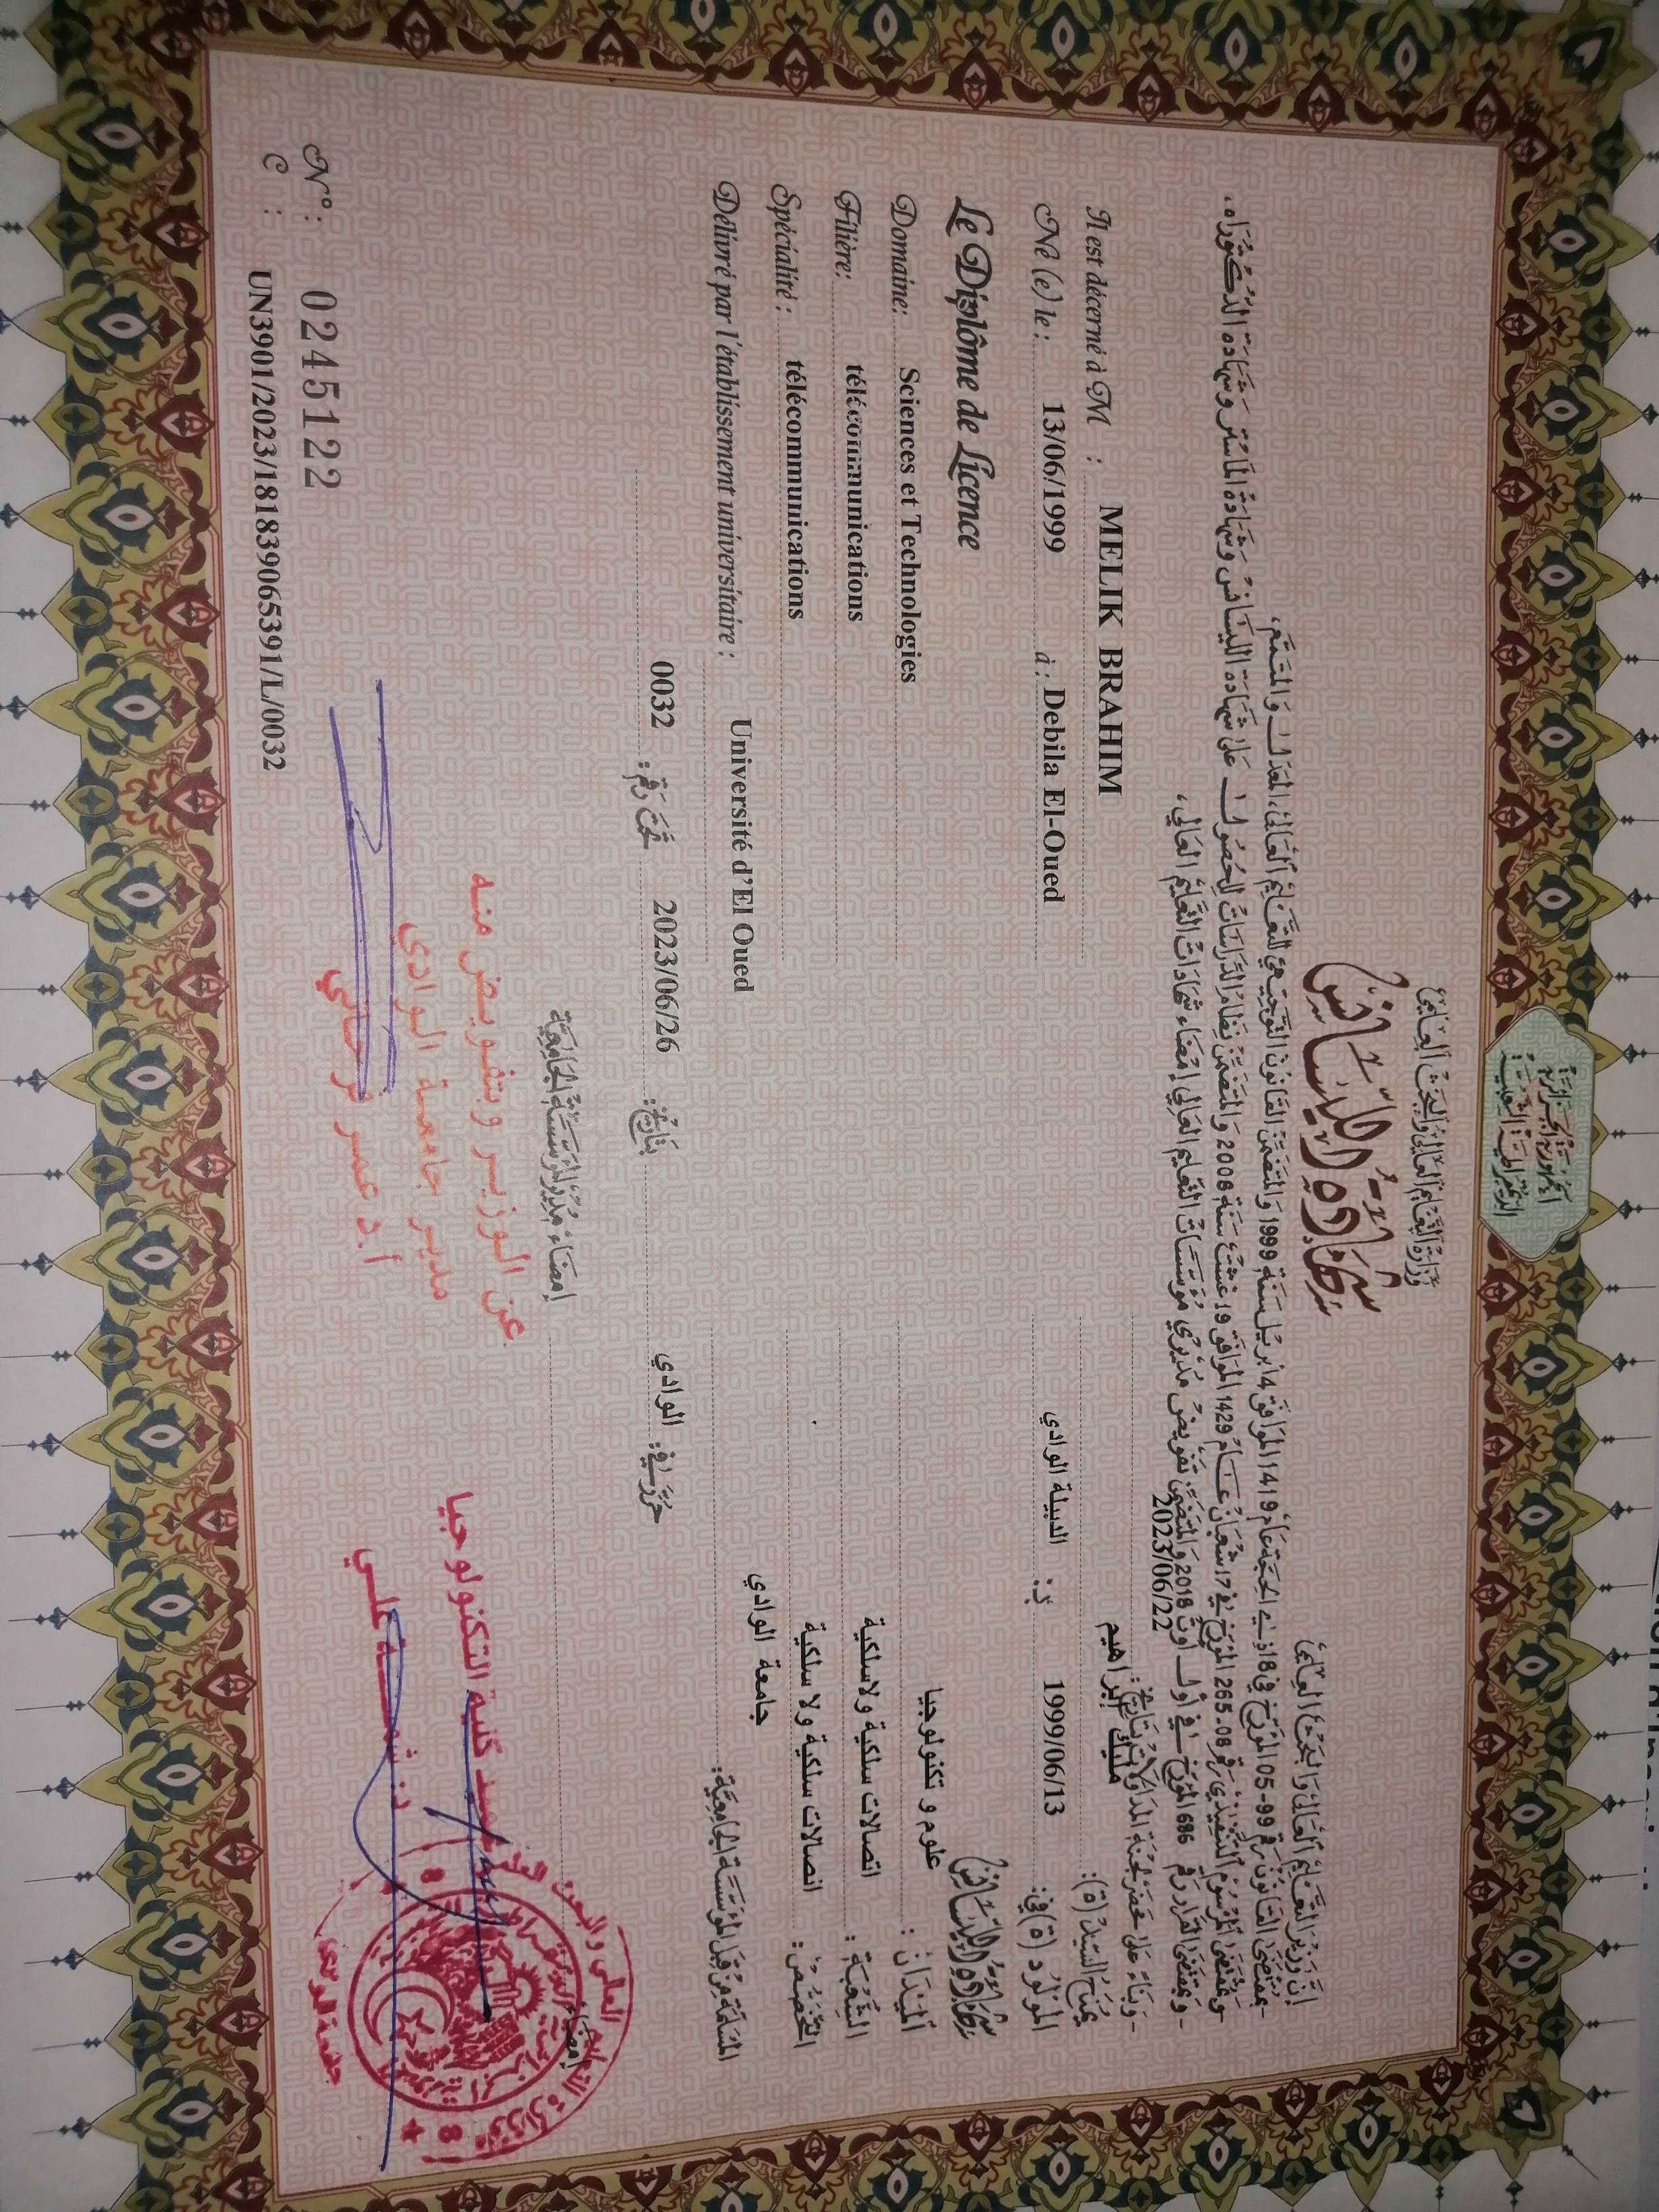 الجمهورية الجزائرية
الديمقراطية الشعبية
وزارة التعليم العالي والبحث العلمي
شهادة الليسانس
إن وزير التعليم العالي والبحث العلمي
- بمقتضى القانون رقم 99-05 المؤرخ في 18 ذي الحجة عام 1419 الموافق 4 أبريل سنة 1999 والمتضمن القانون التوجيهي للتعليم العالي، المعدل والمتمم،
- وبمقتضى المرسوم التنفيذي رقم 08-265 المؤرخ في 17 شعبان عام 1429 الموافق 19 غشت سنة 2008 والمتضمن نظام الدراسات للحصول على شهادة الليسانس وشهادة الماستر وشهادة الدكتوراه،
- وبمقتضى القرار رقم 686 المؤرخ في أول أوت 2018 والمتضمن تفويض مديري مؤسسات التعليم العالي إمضاء شهادات التعليم العالي،
- وبناء على محضر لجنة المداولات بتاريخ: 2023/06/22
يمنح السيد(ة): مليك ابراهيم
Il est décerné à M : MELIK BRAHIM
المولود(ة) في: 1999/06/13 بـ: الدبيلة الوادي
Né (e) le : 13/06/1999 à : Debila El-Oued
شهادة الليسانس
Le Diplôme de Licence
الميدان: علوم و تكنولوجيا
Domaine: Sciences et Technologies
الشعبة: اتصالات سلكية ولاسلكية
Filière: télécommunications
التخصص: اتصالات سلكية ولا سلكية
Spécialité : télécommunications
المسلمة من قبل المؤسسة الجامعية: جامعة الوادي
Délivré par l'établissement universitaire : Université d'El Oued
حرر في: الوادي بتاريخ: 2023/06/26 تحت رقم: 0032
إمضاء
إمضاء مدير المؤسسة الجامعية
عميد كلية التكنولوجيا
عن الوزير وبتفويض منه
مدير جامعة الوادي
أ.د عمر فرحاتي
N°: 0245122
C : UN3901/2023/181839065391/L/0032